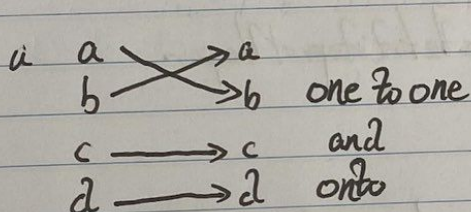 ii a a
b b one to one
c c and
d d onto